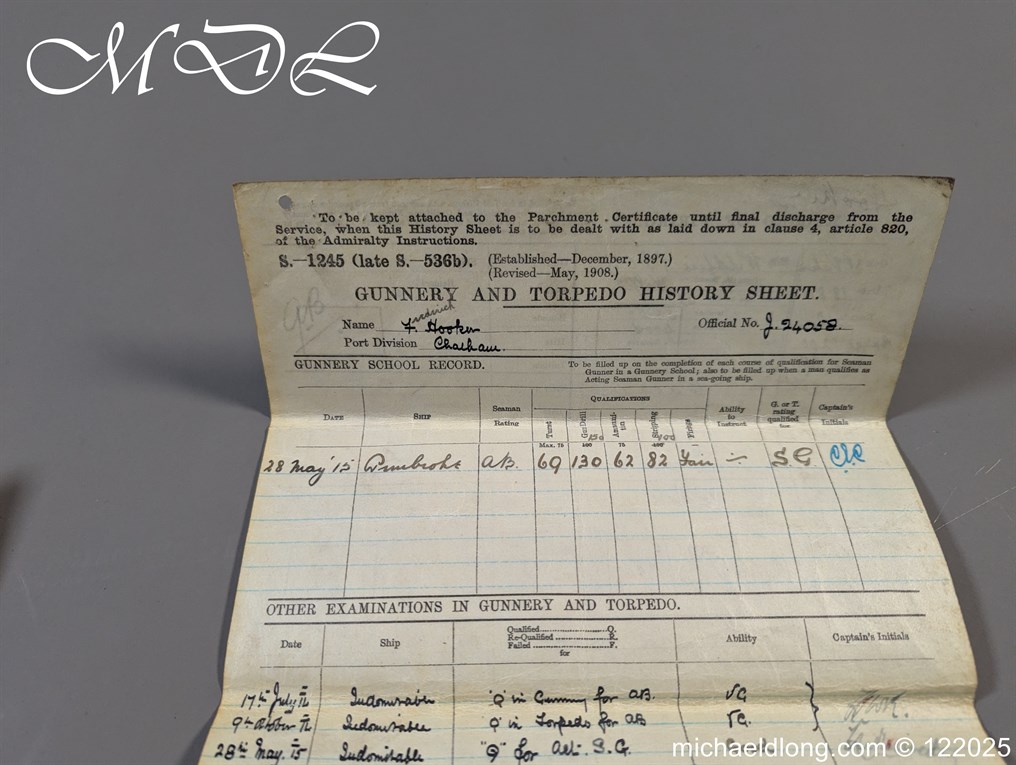 MDL
To be kept attached to the Parchment Certificate until final discharge from the
Service, when this History Sheet is to be dealt with as laid down in clause 4, article 820,
of the Admiralty Instructions.
S.—1245 (late S.—536b). (Established—December, 1897.)
(Revised—May, 1908.)
GUNNERY AND TORPEDO HISTORY SHEET.
Name F. Hooker Official No. J. 24058
Port Division Chatham.
GUNNERY SCHOOL RECORD. To be filled up on the completion of each course of qualification for Seaman
Gunner in a Gunnery School; also to be filled up when a man qualifies as
Acting Seaman Gunner in a sea-going ship.
DATE SHIP Seaman Rating QUALIFICATIONS Ability to Instruct G. or T. rating qualified for Captain's Initials
Max. 75
28 May '15 Pembroke AB. 69 130 62 82 Fair S.G
OTHER EXAMINATIONS IN GUNNERY AND TORPEDO.
Date Ship Qualified Q. Ability Captain's Initials
Re-Qualified R.
Failed F.
for
17th July Indomitable "Q" in Gunnery for AB. VG
9th October Indomitable "Q" in Torpedo for AB VG.
28th May. 15 Indomitable "Q" for Act. S.G.
michaeldlong.com © 122025